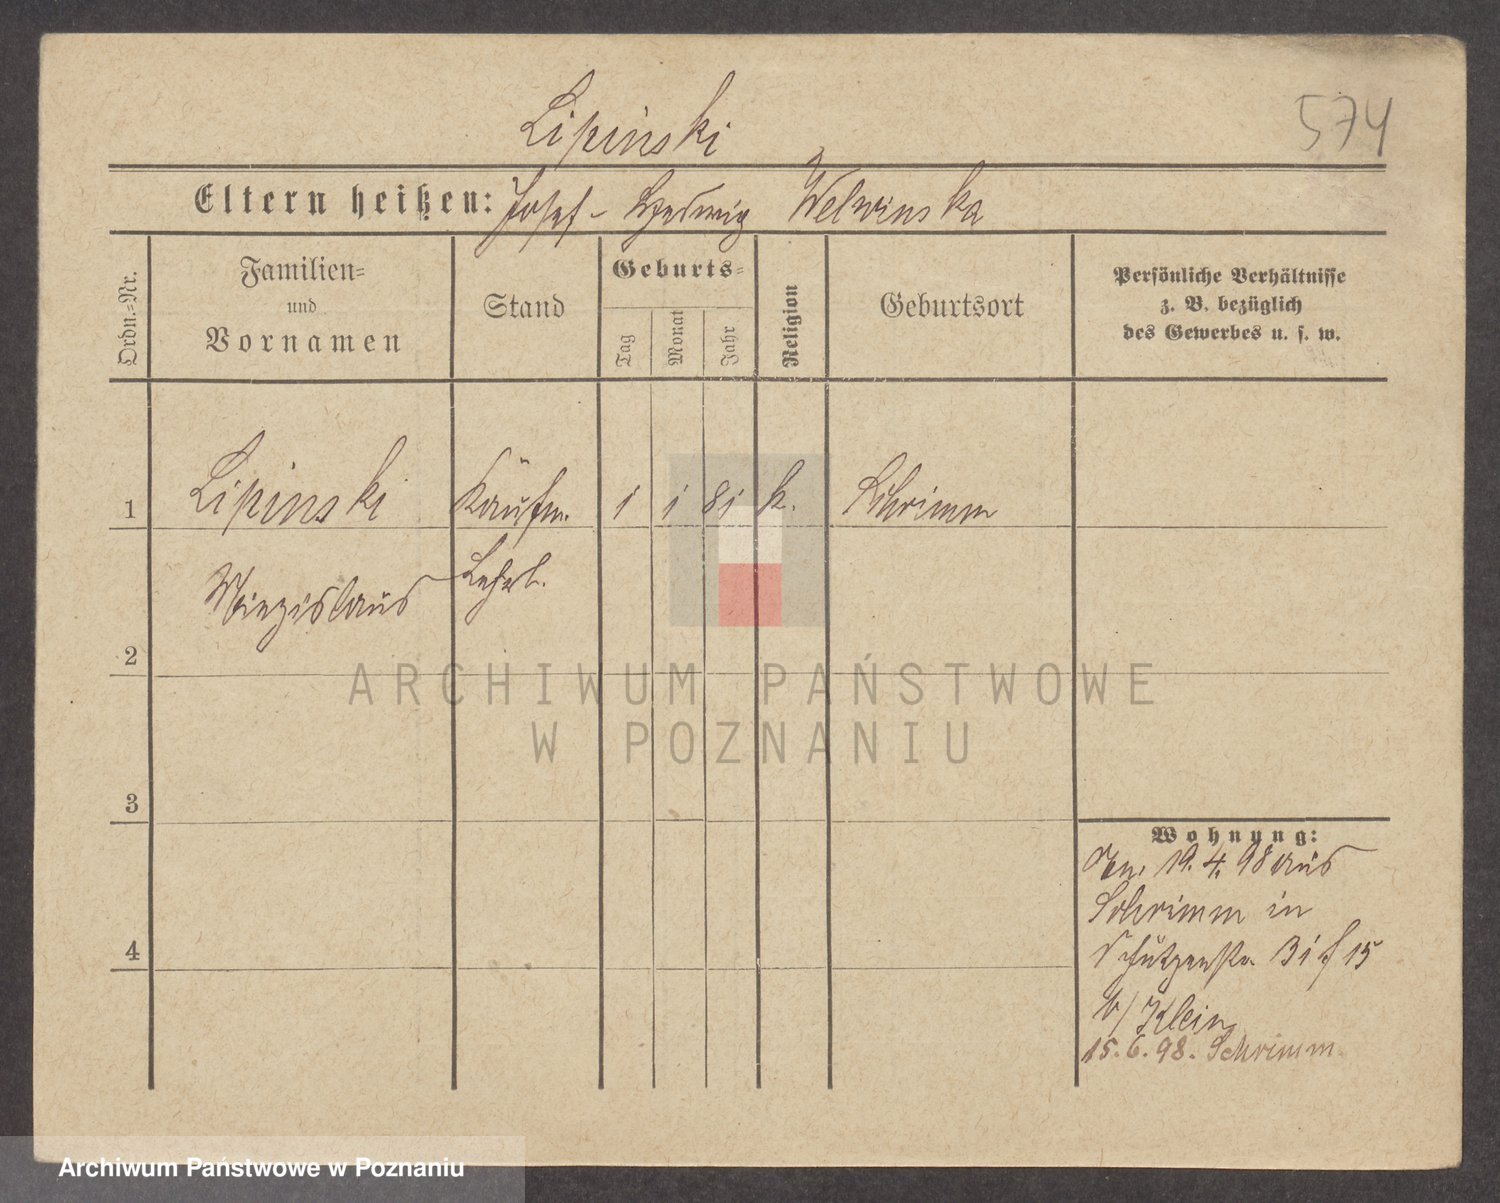 Lipinski
574
Eltern heißen: Josef - Hedwig Welwinska
Ordn.-Nr.
Familien-
und
Vornamen
Stand
Geburts-
Tag
Monat
Jahr
Religion
Geburtsort
Persönliche Verhältnisse
z. B. bezüglich
des Gewerbes u. s. w.
1 Lipinski Kaufm. 1 1 81 k. Schrimm
Miezislaus Lehrl.
2
ARCHIWUM PAŃSTWOWE
W POZNANIU
3
Wohnung:
19. 4. 98 aus
Schrimm in
4
Schützenstr. 31 15
b/ Klein
15. 6. 98. Schrimm
Archiwum Państwowe w Poznaniu